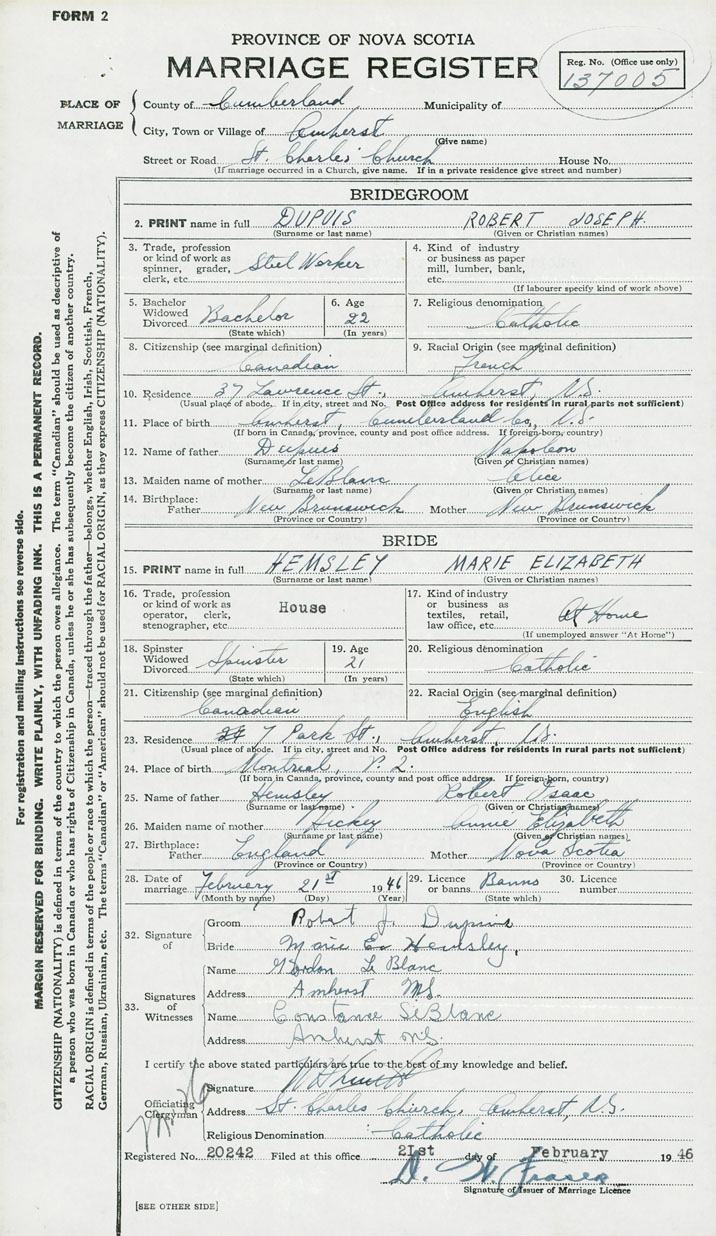 FORM 2
PROVINCE OF NOVA SCOTIA
MARRIAGE REGISTER
Reg. No. (Office use only)
137005
PLACE OF MARRIAGE
County of Cumberland Municipality of
City, Town or Village of Amherst
(Give name)
Street or Road St. Charles' Church House No.
(If marriage occurred in a Church, give name. If in a private residence give street and number)
BRIDEGROOM
2. PRINT name in full DUPUIS ROBERT JOSEPH.
(Surname or last name) (Given or Christian names)
3. Trade, profession or kind of work as spinner, grader, clerk, etc. Steel Worker
4. Kind of industry or business as paper mill, lumber, bank, etc.
(If labourer specify kind of work above)
5. Bachelor Widowed Divorced Bachelor
(State which)
6. Age 22
(In years)
7. Religious denomination
Catholic
8. Citizenship (see marginal definition)
Canadian
9. Racial Origin (see marginal definition)
French
10. Residence 37 Lawrence St., Amherst, N.S.
(Usual place of abode. If in city, street and No. Post Office address for residents in rural parts not sufficient)
11. Place of birth Amherst, Cumberland Co., N.S.
(If born in Canada, province, county and post office address. If foreign-born, country)
12. Name of father Dupuis Napoleon
(Surname or last name) (Given or Christian names)
13. Maiden name of mother LeBlanc Alice
(Surname or last name) (Given or Christian names)
14. Birthplace: Father New Brunswick Mother New Brunswick
(Province or Country) (Province or Country)
BRIDE
15. PRINT name in full HEMSLEY MARIE ELIZABETH
(Surname or last name) (Given or Christian names)
16. Trade, profession or kind of work as operator, clerk, stenographer, etc. House
17. Kind of industry or business as textiles, retail, law office, etc. At Home
(If unemployed answer "At Home")
18. Spinster Widowed Divorced Spinster
(State which)
19. Age 21
(In years)
20. Religious denomination
Catholic
21. Citizenship (see marginal definition)
Canadian
22. Racial Origin (see marginal definition)
English
23. Residence 7 Park St., Amherst, N.S.
(Usual place of abode. If in city, street and No. Post Office address for residents in rural parts not sufficient)
24. Place of birth Montreal, P.Q.
(If born in Canada, province, county and post office address. If foreign-born, country)
25. Name of father Hemsley Robert Isaac
(Surname or last name) (Given or Christian names)
26. Maiden name of mother Annie Elizabeth
(Surname or last name) (Given or Christian names)
27. Birthplace: Father England Mother Nova Scotia
(Province or Country) (Province or Country)
28. Date of marriage February 21st 1946
(Month by name) (Day) (Year)
29. Licence or banns Banns
(State which)
30. Licence number
32. Signature of
Groom Robert J. Dupuis
Bride Marie E. Hemsley
33. Signatures of Witnesses
Name Gordon Le Blanc
Address Amherst N.S.
Name Constance LeBlanc
Address Amherst N.S.
I certify the above stated particulars are true to the best of my knowledge and belief.
Officiating Clergyman
Signature
Address St. Charles Church, Amherst, N.S.
Religious Denomination Catholic
Registered No. 20242 Filed at this office 21st day of February 1946
Signature of Issuer of Marriage Licence
[SEE OTHER SIDE]
For registration and mailing instructions see reverse side.
MARGIN RESERVED FOR BINDING. WRITE PLAINLY, WITH UNFADING INK. THIS IS A PERMANENT RECORD.
CITIZENSHIP (NATIONALITY) is defined in terms of the country to which the person owes allegiance. The term "Canadian" should be used as descriptive of
a person who was born in Canada or who has rights of Citizenship in Canada, unless he or she has subsequently become the citizen of another country.
RACIAL ORIGIN is defined in terms of the people or race to which the person—traced through the father—belongs, whether English, Irish, Scottish, French,
German, Russian, Ukrainian, etc. The terms "Canadian" or "American" should not be used for RACIAL ORIGIN, as they express CITIZENSHIP (NATIONALITY).